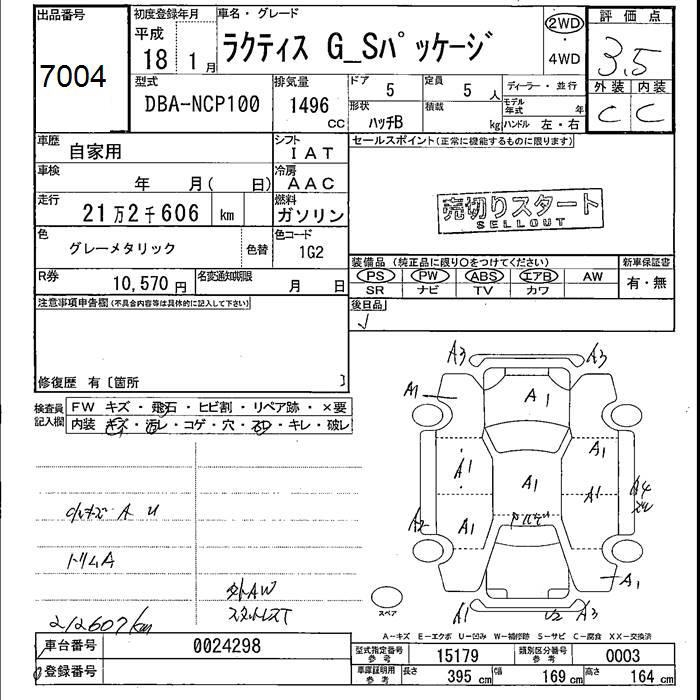 出品番号
7004
初度登録年月
平成
18 1月
車名・グレード
ラクティス G_Sパッケージ
2WD
4WD
評価点
3.5
外装 内装
C C
型式
DBA-NCP100
排気量
1496
CC
ドア
5
定員
5人
形状
ハッチB
積載
kg
ディーラー・並行
モデル年式 年
ハンドル 左・右
車歴
自家用
シフト
IAT
車検
年 月( 日)
冷房
AAC
走行
21万2千606 km
燃料
ガソリン
色
グレーメタリック
色替
色コード
1G2
R券
10,570円
名変通知期限
月 日
セールスポイント(正常に機能するものに限ります)
売切りスタート
SELLOUT
装備品(純正品に限り○をつけてください)
新車保証書
PS PW ABS エアB AW
SR ナビ TV カワ
有・無
後日品
注意事項申告欄(不具合内容等は具体的に記入して下さい)
修復歴 有〔箇所 〕
検査員記入欄
FW キズ・飛石・ヒビ割・リペア跡・×要
内装 キズ・汚レ・コゲ・穴・スレ・キレ・破レ
トリムA
外AW
スタットレスT
212607km
A3 A3
A1
A1
A1
A1
A1
A1
A1
A4
A2
A1
A1
A1
U2
A3
スペア
A-キズ E-エクボ U-凹み W-補修跡 S-サビ C-腐食 XX-交換済
車台番号
0024298
登録番号
型式指定番号
参考
15179
類別区分番号
参考
0003
車庫証明用
参考
長さ 395 cm
幅 169 cm
高さ 164 cm